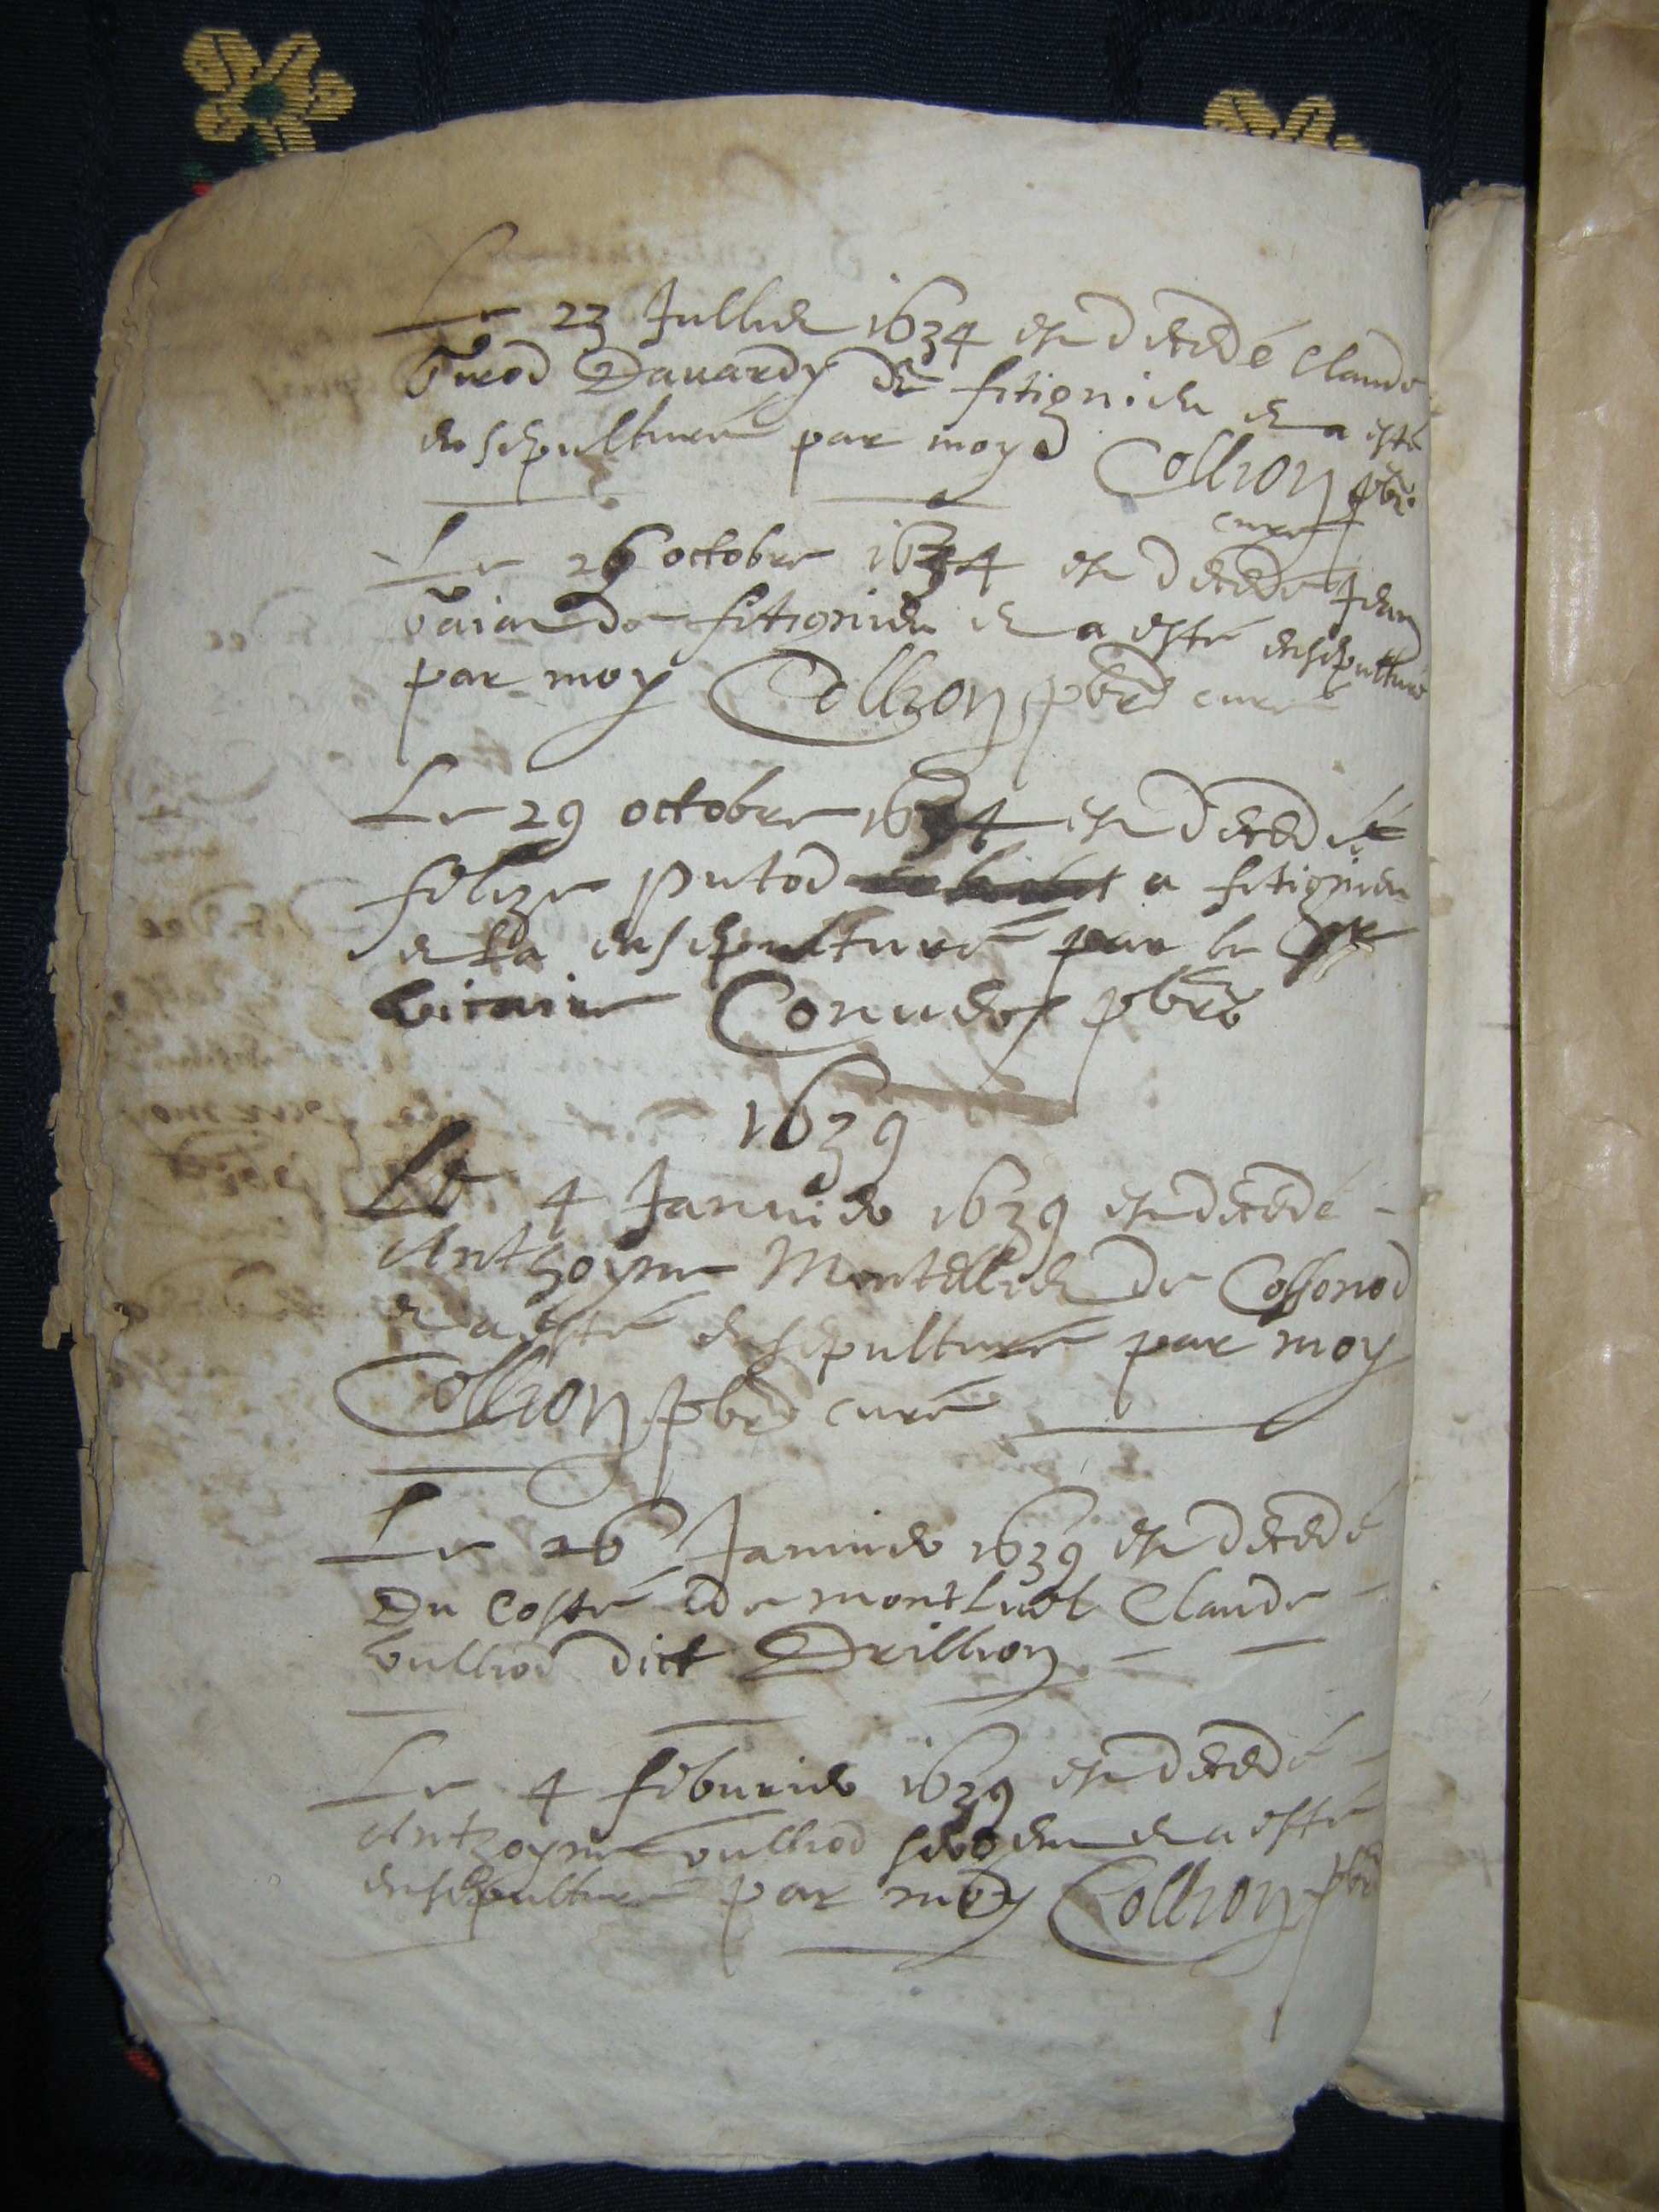 Le 23 Julliet 1634 est decedé Claude
Davardy de fitignieu et a esté
ensepulturé par moy Collion pbr
curé
Le 26 octobre 1634 est decedé Jean
de fitignieu et a esté ensepulturé
par moy Collion pbre curé
Le 29 octobre 1634 est decedé
felize putod a fitignieu
et la ensepulturé par le
vicaire pbre
1639
Le 4 Janvier 1639 est decedé
Anthoyne Montellier de Cossonod
et a esté ensepulturé par moy
Collion pbre curé
Le 26 Janvier 1639 est decedé
Du Costé de montluel Claude
vulliod dict Drillion
Le 4 febvrier 1639 est decedé
Anthoyne vulliod et a esté
ensepulturé par moy Collion pbre